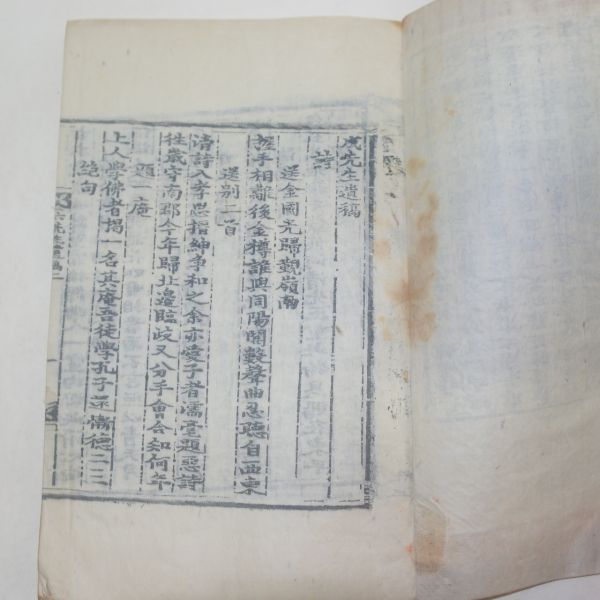 成先生遺稿
詩
送金國光歸覲嶺南
握手相離後金樽誰與同陽關數聲曲忍聽自西東
送別二首
淸詩入孝思搢紳爭和之余亦愛子者濡毫題惡詩
往歲守南郡今年歸北邊臨歧又分手會合知何年
題一庵
上人學佛者揭一名其庵吾徒學孔子還慚德二三
絶句
六先生遺稿二